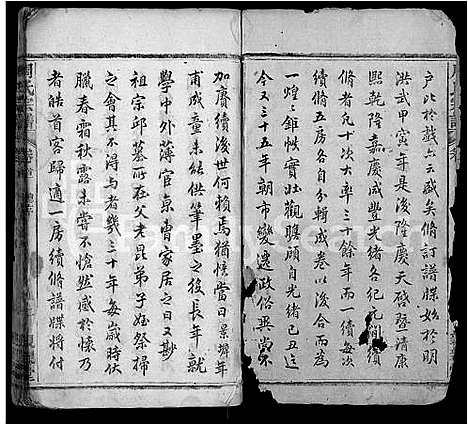 戶比於戲亦云盛矣脩訂譜牒始於明
洪武甲寅年集後隆慶天啟暨清康
熙乾隆嘉慶咸豐光緒各紀元間續
脩者凡十次大率三十餘年而一續每次
續脩必各分輯成卷以後合而為
一煌煌鉅帙實壯觀瞻顧自光緒己丑迄
今又三十五年朝市變遷政俗異常不
加賡續後世何賴焉猶憶當日景
甫成童未結供筆墨之役長年就
學中外薄宦東南家居之日又尠
祖宗邱墓所在父老昆弟子姪祭掃
之會其不得與者幾三十年每歲時伏
臘春霜秋露未嘗不愴然感於懷乃
者皓首客歸適一房續脩譜牒將付
周氏宗譜